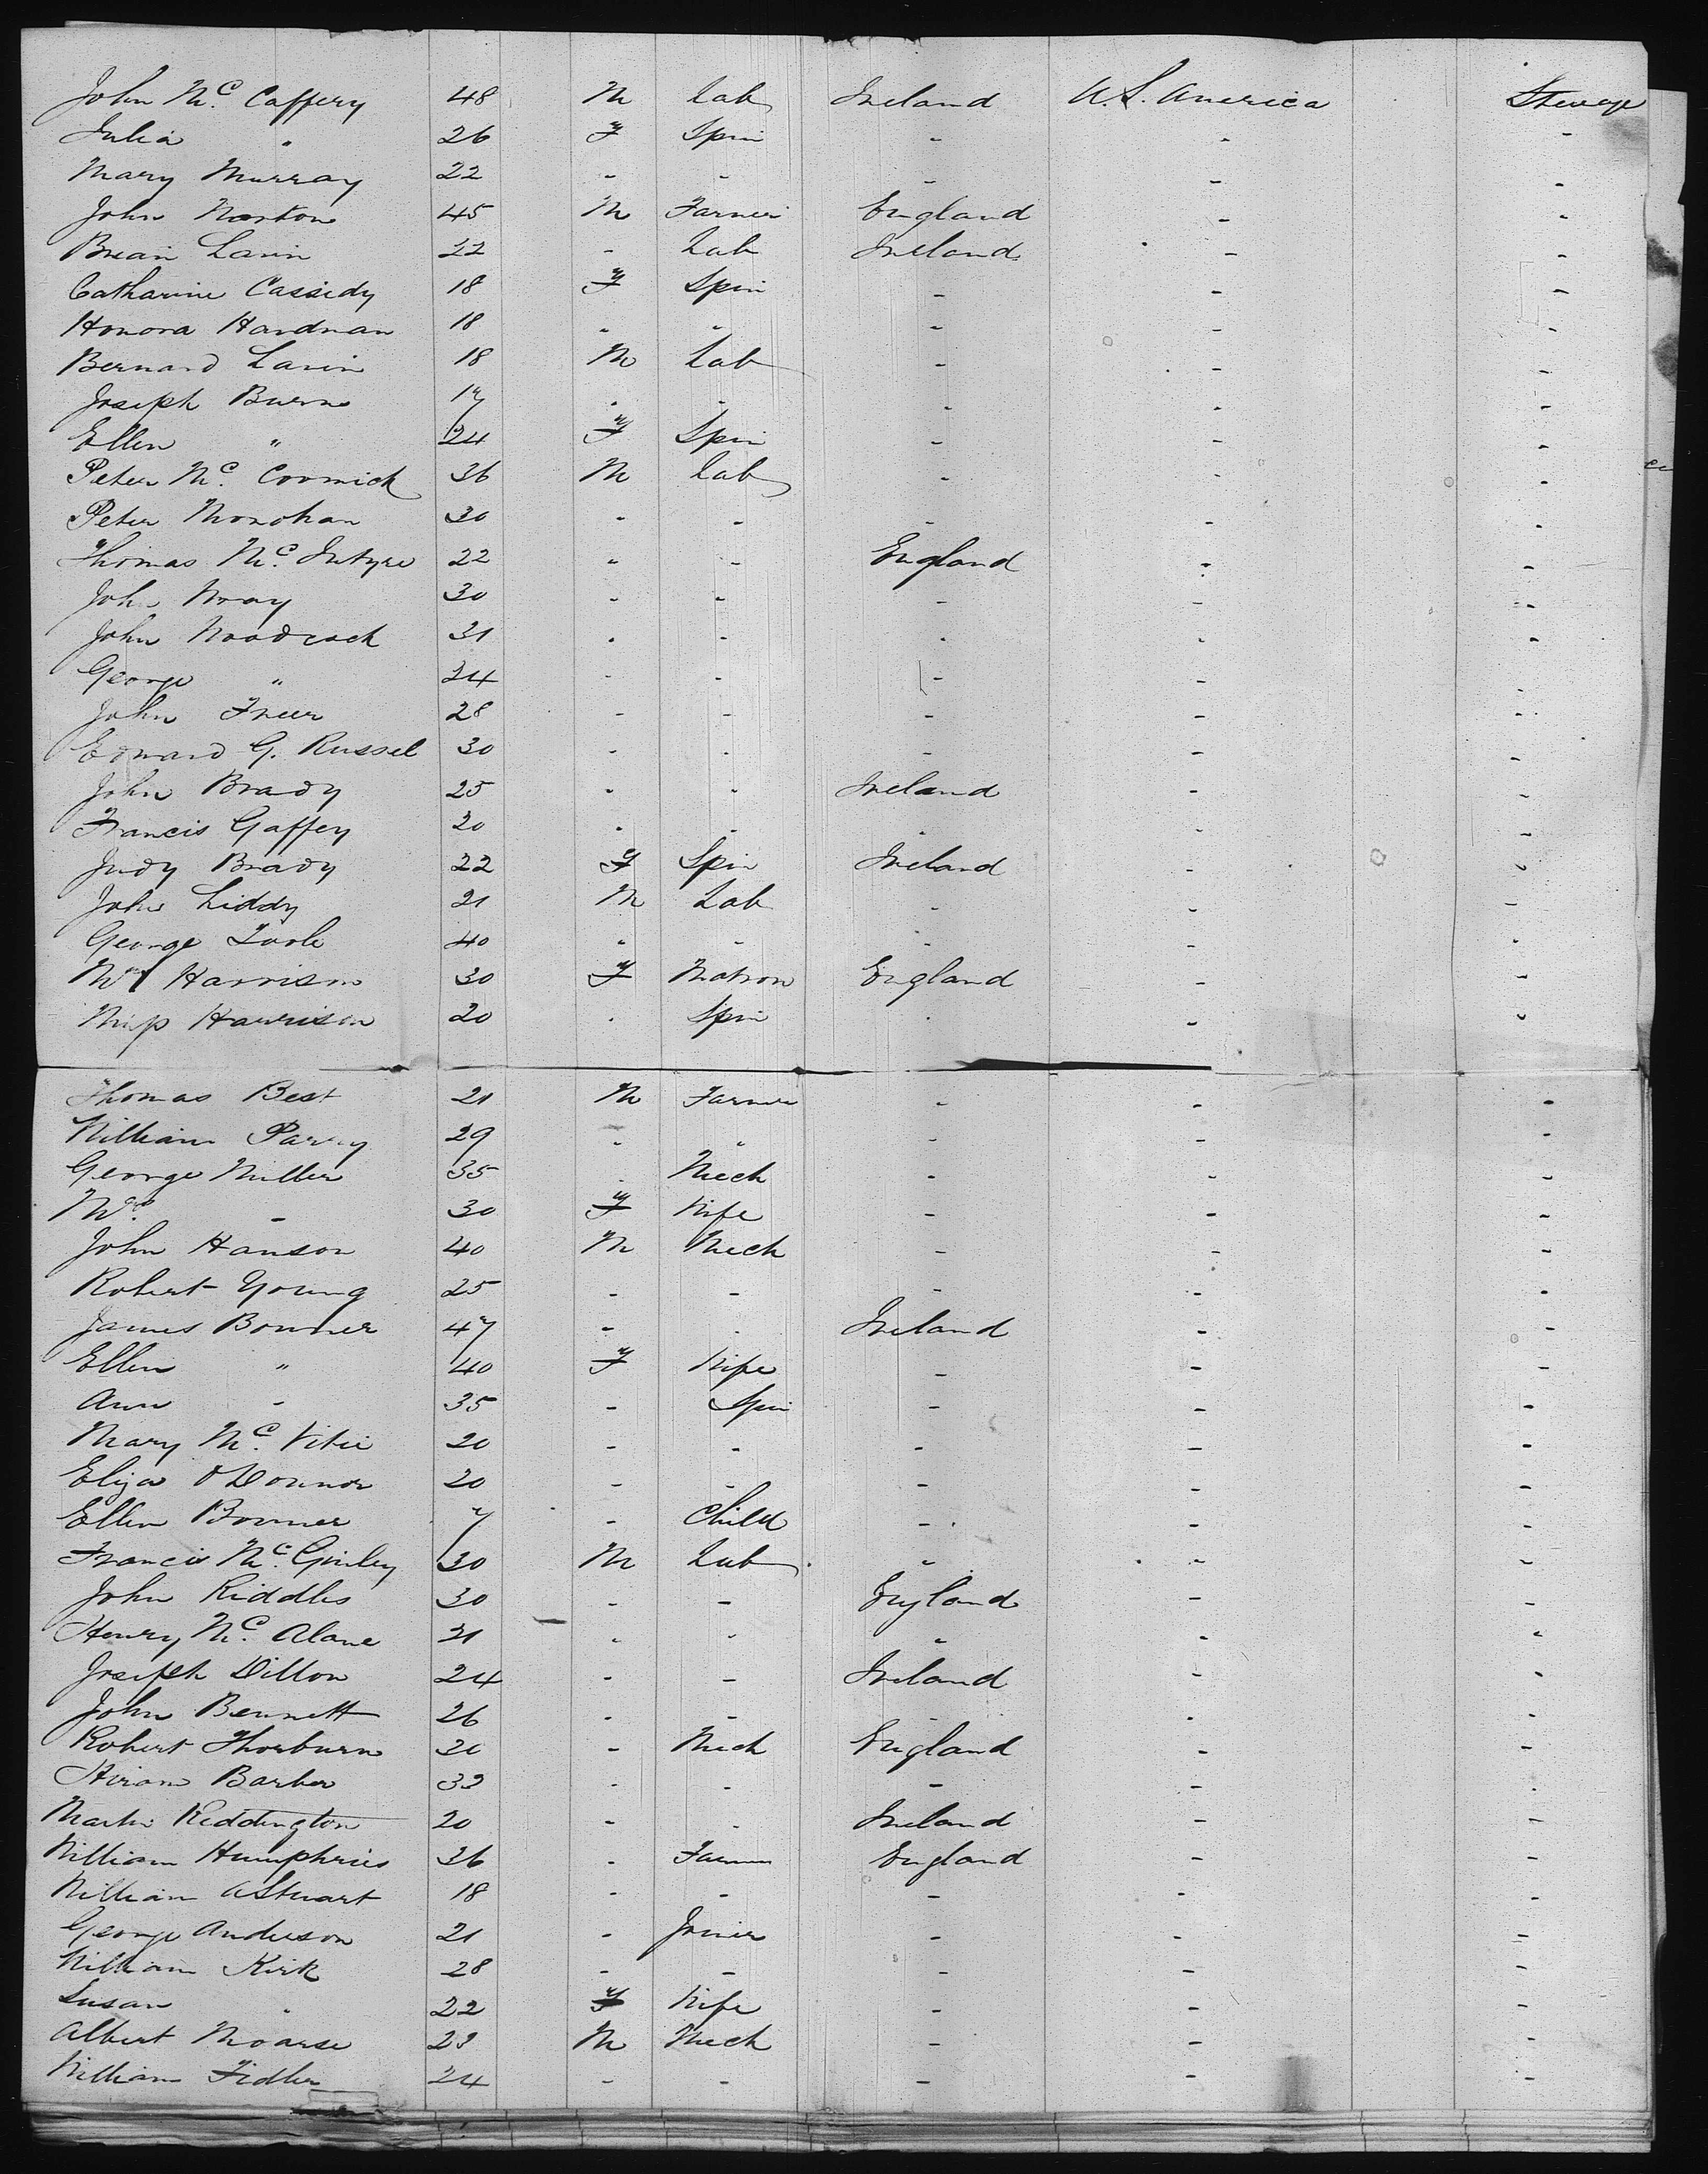 John Mc. Caffery 48 M Lab Ireland U.S. America Steerage
Julia " 26 F Spin - - -
Mary Murray 22 - - - - -
John Norton 45 M Farmer England - -
Brian Lavin 22 - Lab Ireland - -
Catharine Cassidy 18 F Spin - - -
Honora Hardman 18 " " - - -
Bernard Lavin 18 M Lab - - -
Joseph Burns 17 - - - - -
Ellen " 24 F Spin - - -
Peter Mc. Cormick 36 M Lab - - -
Peter Monohan 30 - - - - -
Thomas Mc. Intyre 22 " - England - -
John Wray 30 - - - - -
John Woodcock 31 - - - - -
George " 24 - - - - -
John Freer 28 - - - - -
Edward G. Russel 30 - - - - -
John Brady 25 - - Ireland - -
Francis Gaffey 20 - - - - -
Judy Brady 22 F Spin Ireland - -
John Liddy 21 M Lab - - -
George Toole 40 - - - - -
Mrs Harrison 30 F Matron England - -
Miss Harrison 20 - Spin - - -
Thomas Best 21 M Farmer - - -
William Parry 29 - " - - -
George Miller 35 - Mech - - -
Mrs. - 30 F Wife - - -
John Hanson 40 M Mech - - -
Robert Young 25 - - - - -
James Bonner 47 - - Ireland - -
Ellen " 40 F Wife - - -
Ann - 35 - Spin - - -
Mary Mc. Vitie 20 - - - - -
Eliza O'Donnor 20 - - - - -
Ellen Bonner 7 - Child - - -
Francis Mc. Ginley 30 M Lab - - -
John Riddles 30 - - England - -
Henry Mc. Alane 31 - - " - -
Joseph Dillon 24 - - Ireland - -
John Bennett 26 - - - - -
Robert Thorburn 30 - Mech England - -
Hiram Barber 33 - - - - -
Martin Reddington 20 - - Ireland - -
William Humphries 36 - Farmer England - -
William A Stuart 18 - - - - -
George Anderson 21 - Joiner - - -
William Kirk 28 - - - - -
Susan " 22 F Wife - - -
Albert Moarse 23 M Mech - - -
William Fidler 24 - - - - -